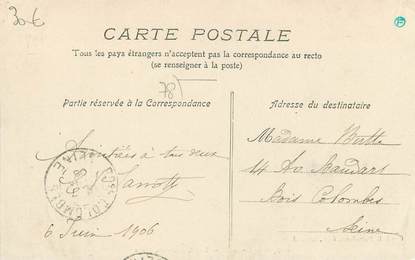 30€
CARTE POSTALE
Tous les pays étrangers n'acceptent pas la correspondance au recto
(se renseigner à la poste)
78
Partie réservée à la Correspondance
Adresse du destinataire
Amitiés à tous deux
6 Juin 1906
Madame
14 Av.
Bois Colombes
Seine